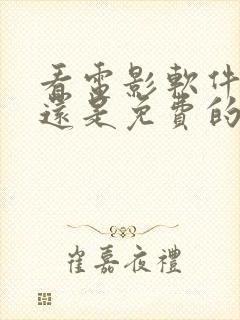 看電影軟件
還是免費的
崔嘉夜禮